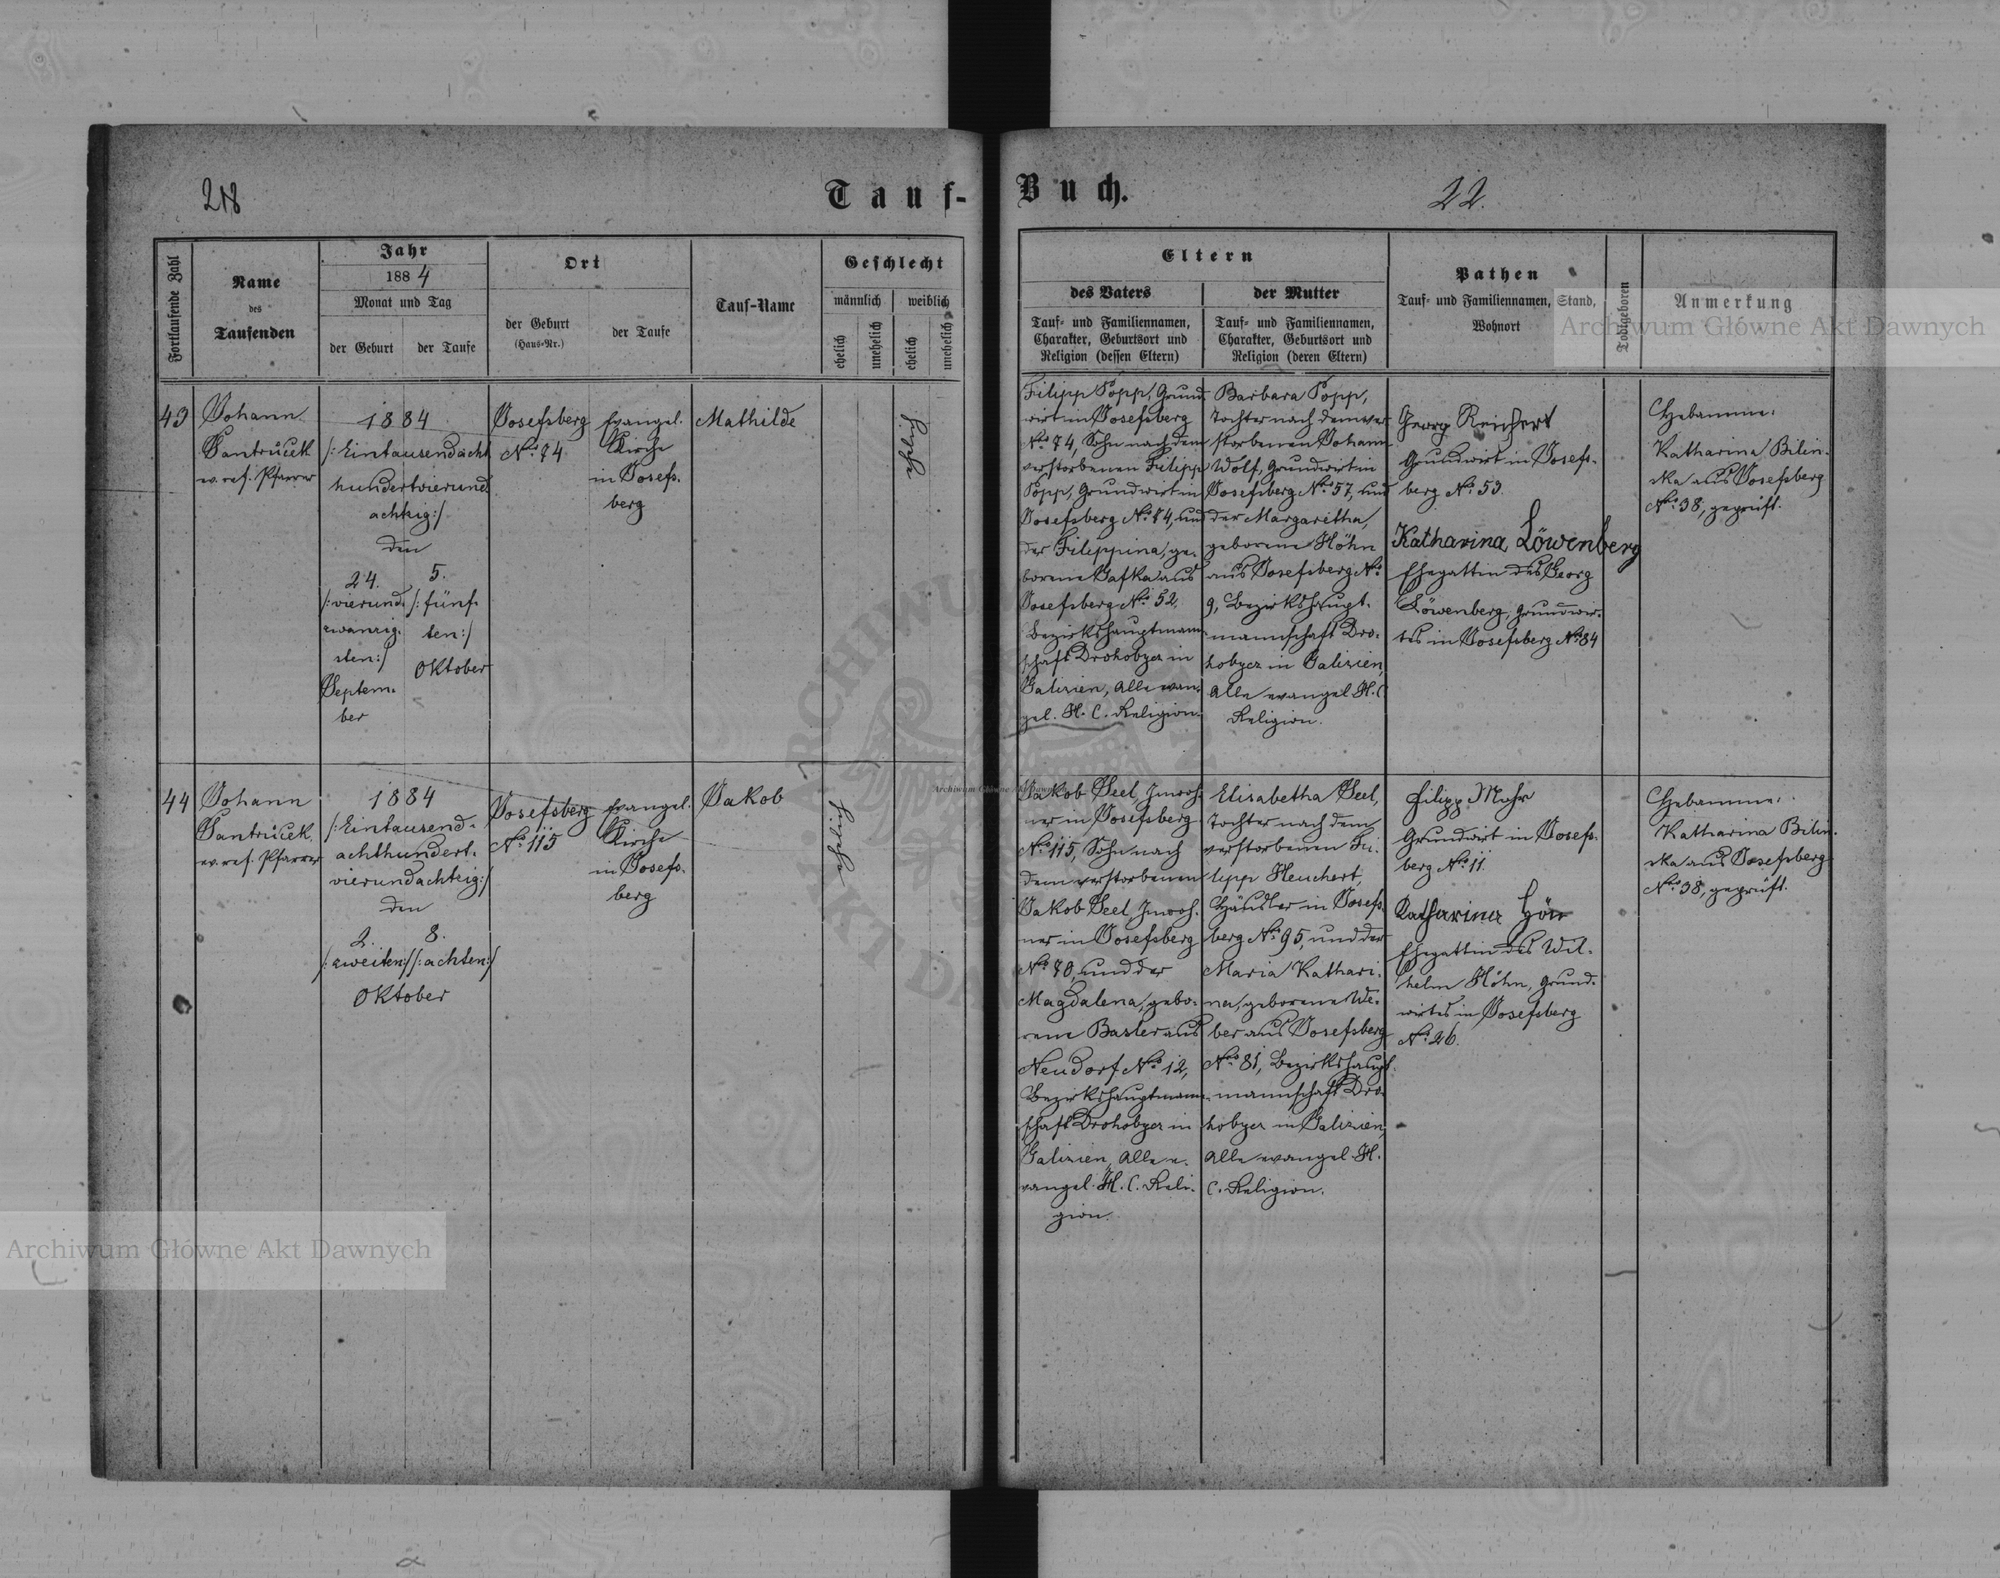 218
Tauf-
Buch.
22.
Fortlaufende Zahl
Name
des
Taufenden
Jahr
1884
Monat und Tag
der Geburt
der Taufe
Ort
der Geburt
(Haus-Nr.)
der Taufe
Tauf-Name
Geschlecht
männlich
weiblich
ehelich
unehelich
ehelich
unehelich
Eltern
des Vaters
der Mutter
Tauf- und Familiennamen,
Charakter, Geburtsort und
Religion (dessen Eltern)
Tauf- und Familiennamen,
Charakter, Geburtsort und
Religion (deren Eltern)
Pathen
Tauf- und Familiennamen, Stand,
Wohnort
Todtgeboren
Anmerkung
Archiwum Główne Akt Dawnych
43
Johann
Jantrůček
ev. ref. Pfarrer
1884
/: Eintausendacht
hundertvierund
achtzig:/
den
24.
/: vierund
zwanzig-
sten:/
Septem-
ber
5.
/: fünf-
ten:/
Oktober
Josefsberg
No. 74
Evangel.
Kirche
in Josefs-
berg
Mathilde
ehelich
Filipp Popp, Grund
wirt in Josefsberg
No. 74, Sohn nach dem
verstorbenen Filipp
Popp, Grundwirt in
Josefsberg No. 74, und
der Filippina, ge-
borene Gafka aus
Josefsberg No. 52,
Bezirkshauptmann-
schaft Drohobycz in
Galizien, Alle evan-
gel. H. C. Religion.
Barbara Popp,
Tochter nach dem ver
storbenen Johann
Wolf, Grundwirt in
Josefsberg No. 57, und
der Margaretha,
geborene Höhn
aus Josefsberg No.
9, Bezirkshaupt-
mannschaft Dro-
hobycz in Galizien,
Alle evangel. H. C
Religion.
Georg Reichert
Grundwirt in Josefs-
berg No. 53.
Katharina Löwenberg
Ehegattin des Georg
Löwenberg, Grundwir-
tes in Josefsberg No. 84
Hebamme:
Katharina Bilin-
ska aus Josefsberg
No. 38, geprüft.
44
Johann
Jantrůček
ev. ref. Pfarrer
1884
/: Eintausend-
achthundert-
vierundachtzig:/
den
2.
/: zweiten:/
8.
/: achten:/
Oktober
Josefsberg
No. 115
Evangel.
Kirche
in Josefs-
berg
Jakob
ehelich
Jakob Seel, Inwoh-
ner in Josefsberg
No. 115, Sohn nach
dem verstorbenen
Jakob Seel, Inwoh-
ner in Josefsberg
No. 70, und der
Magdalena, gebo-
rene Basler aus
Neudorf No. 12,
Bezirkshauptmann-
schaft Drohobycz in
Galizien, Alle e-
vangel. H. C. Reli-
gion.
Elisabetha Seel,
Tochter nach dem
verstorbenen Fi-
lipp Heuchert,
Häusler in Josefs-
berg No. 95, und der
Maria Kathari-
na, geborene We-
ber aus Josefsberg
No. 81, Bezirkshaupt-
mannschaft Dro-
hobycz in Galizien,
Alle evangel. H.
C. Religion.
Filipp Mohr
Grundwirt in Josefs-
berg No. 11.
Katharina Hön
Ehegattin des Wil-
helm Höhn, Grund-
wirtes in Josefsberg
No. 26.
Hebamme:
Katharina Bilin-
ska aus Josefsberg
No. 38, geprüft.
Archiwum Główne Akt Dawnych
Archiwum Główne Akt Dawnych